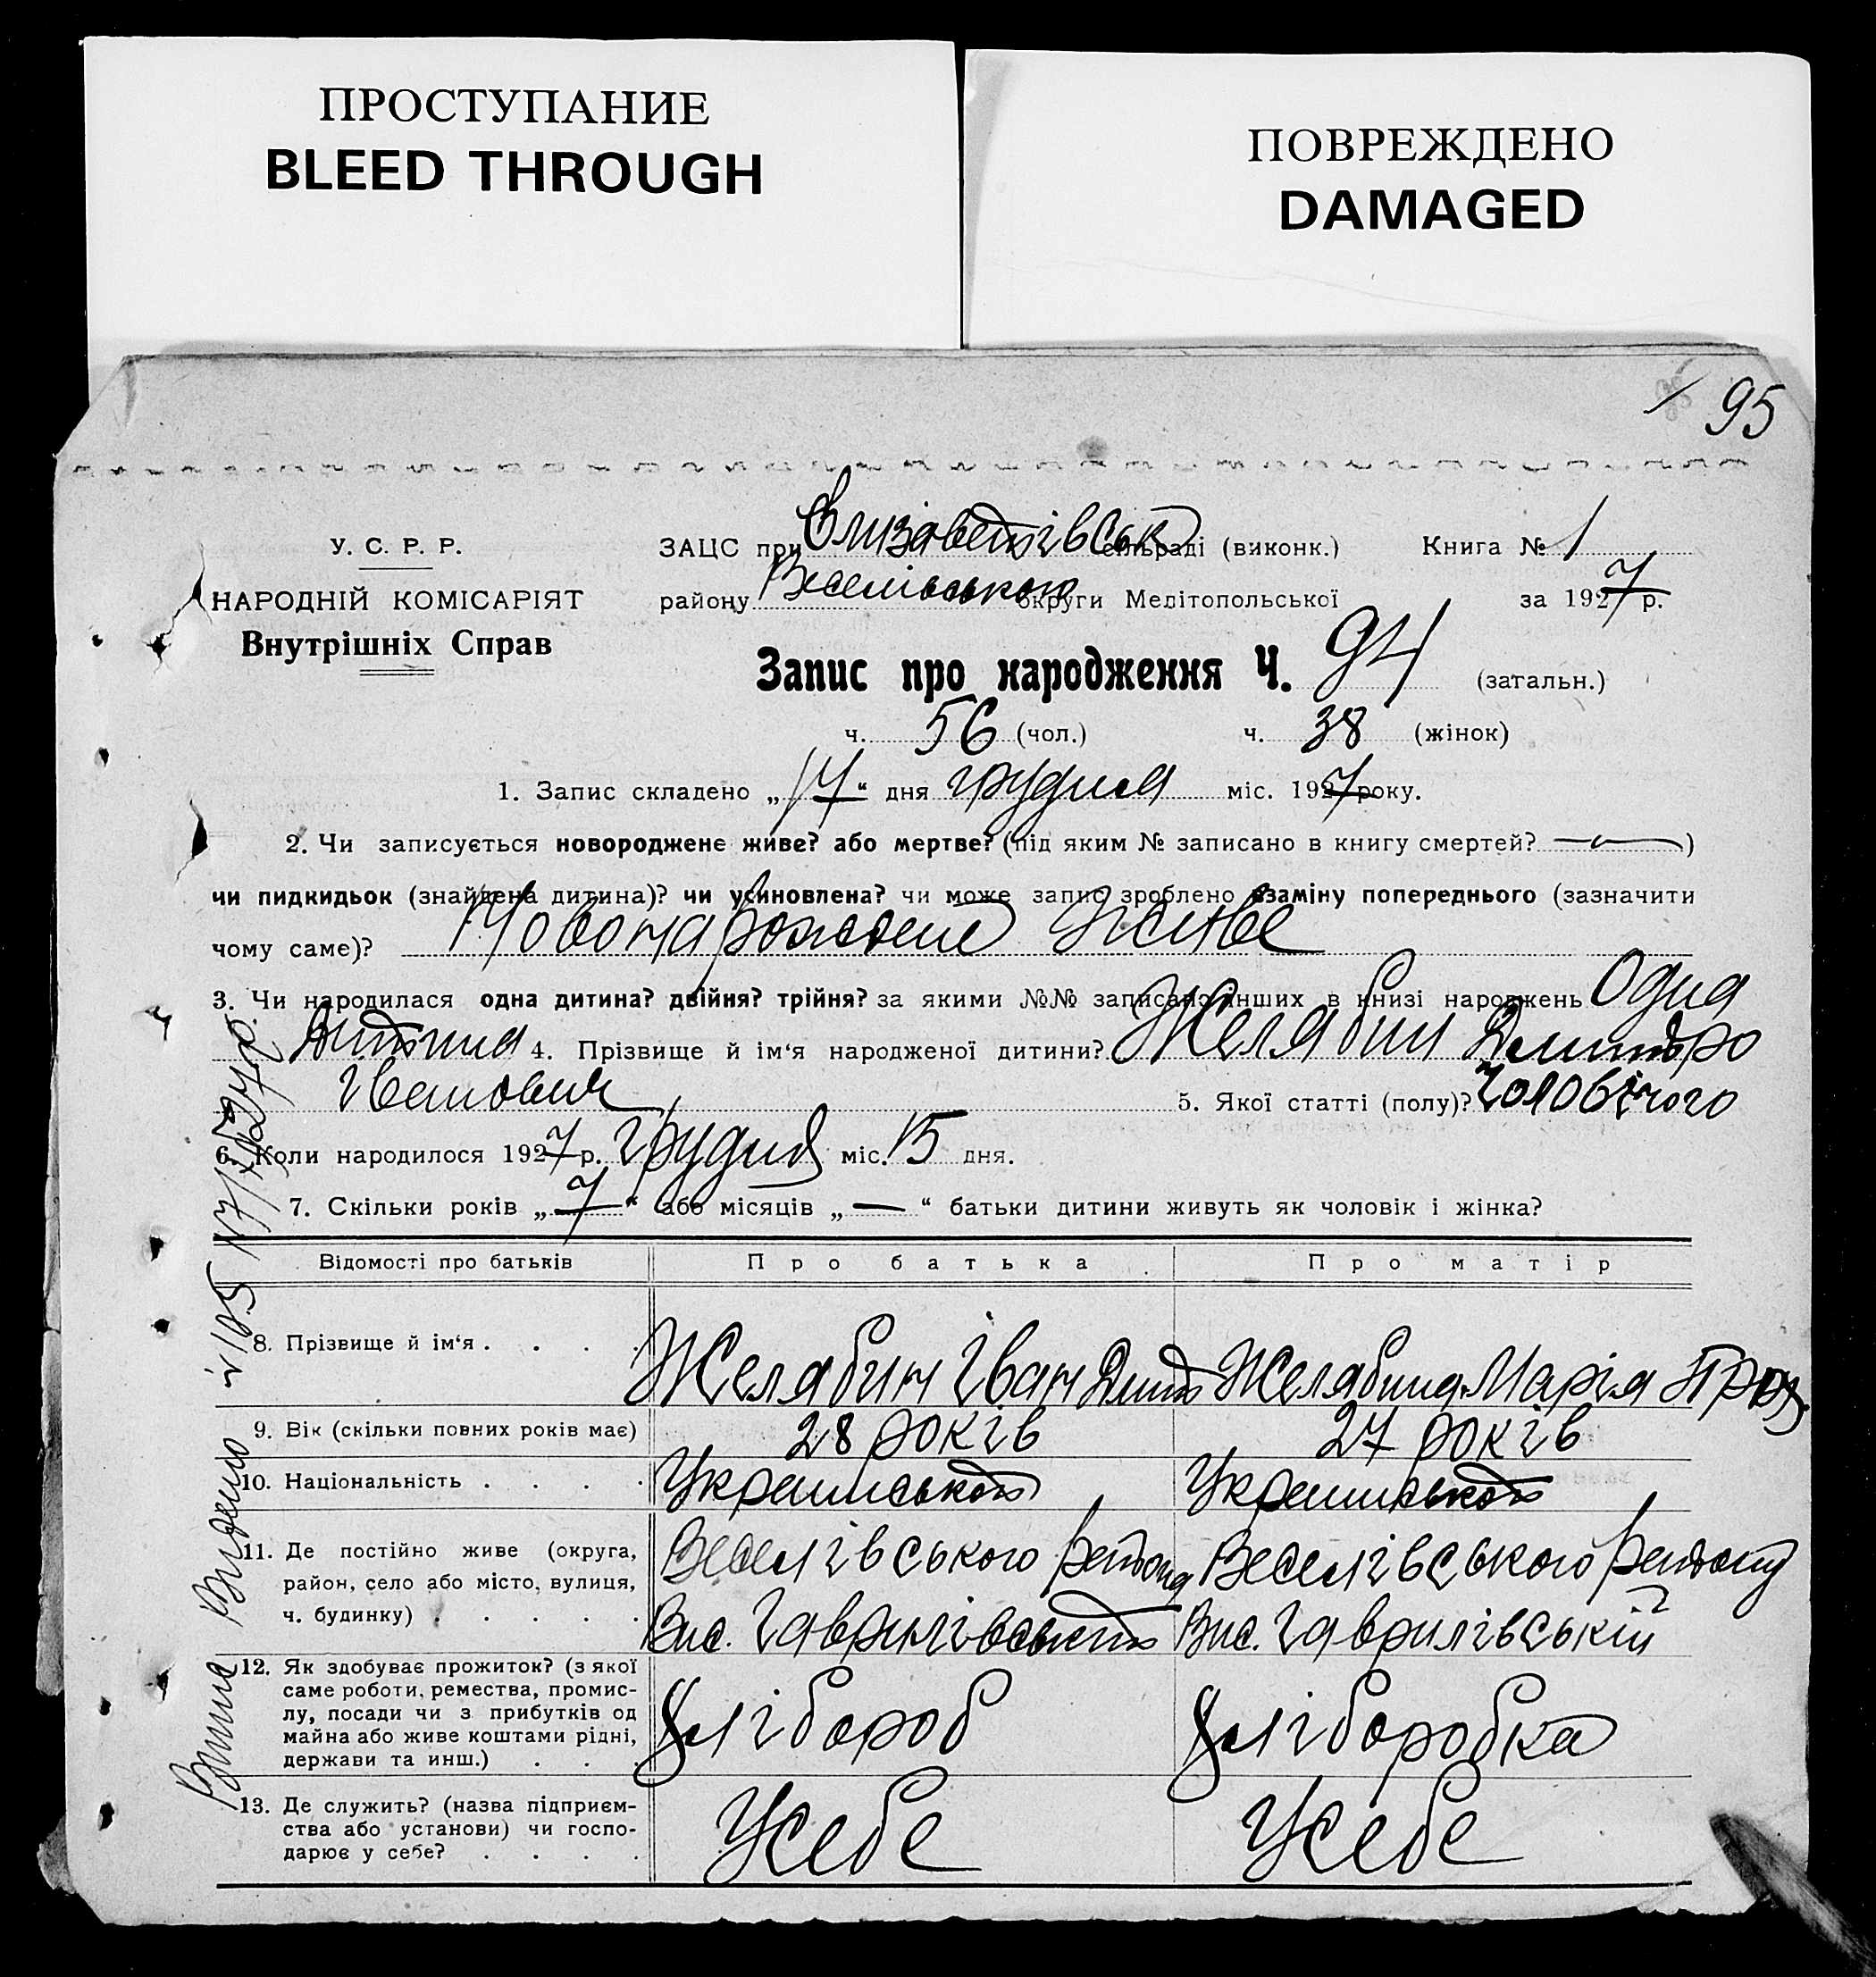 ПРОСТУПАНИЕ
BLEED THROUGH
ПОВРЕЖДЕНО
DAMAGED
95
У. С. Р. Р.
НАРОДНІЙ КОМІСАРІЯТ
Внутрішніх Справ
ЗАЦС при Єлизаветівськ сільраді (виконк.) Книга № 1
району Веселівського округи Мелітопольської за 1927 р.
Запис про народження Ч. 94 (загальн.)
ч. 56 (чол.) ч. 38 (жінок)
1. Запис складено „17“ дня грудня міс. 1927 року.
2. Чи записується новороджене живе? або мертве? (під яким № записано в книгу смертей? —)
чи пидкидьок (знайдена дитина)? чи усиновлена? чи може запис зроблено взаміну попереднього (зазначити
чому саме)? Новонарожденe живе
3. Чи народилася одна дитина? двійня? трійня? за якими №№ записано инших в книзі народжень Одна
дитина 4. Прізвище й ім‘я народженої дитини? Желябин Дмитро
Іванович 5. Якої статті (полу)? чоловічого
6. Коли народилося 1927 р. грудня міс. 15 дня.
7. Скільки років „7“ або місяців „—“ батьки дитини живуть як чоловік і жінка?
Відомості про батьків Про батька Про матір
8. Прізвище й ім‘я . . . . Желябин Іван Дмит Желябина Марія
9. Вік (скільки повних років має) 28 років 27 років
10. Національність . . . . Украинської Украинської
11. Де постійно живе (округа,
район, село або місто, вулиця,
ч. будинку) . . . . .
Веселівського району
Вис. Гаврилівській
Веселівського району
Вис. Гаврилівській
12. Як здобуває прожиток? (з якої
саме роботи, ремества, промис-
лу, посади чи з прибутків од
майна або живе коштами рідні,
держави та инш.) . . .
Хлібороб
Хліборобка
13. Де служить? (назва підприєм-
ства або установи) чи госпо-
дарює у себе? . . . .
У себе
У себе